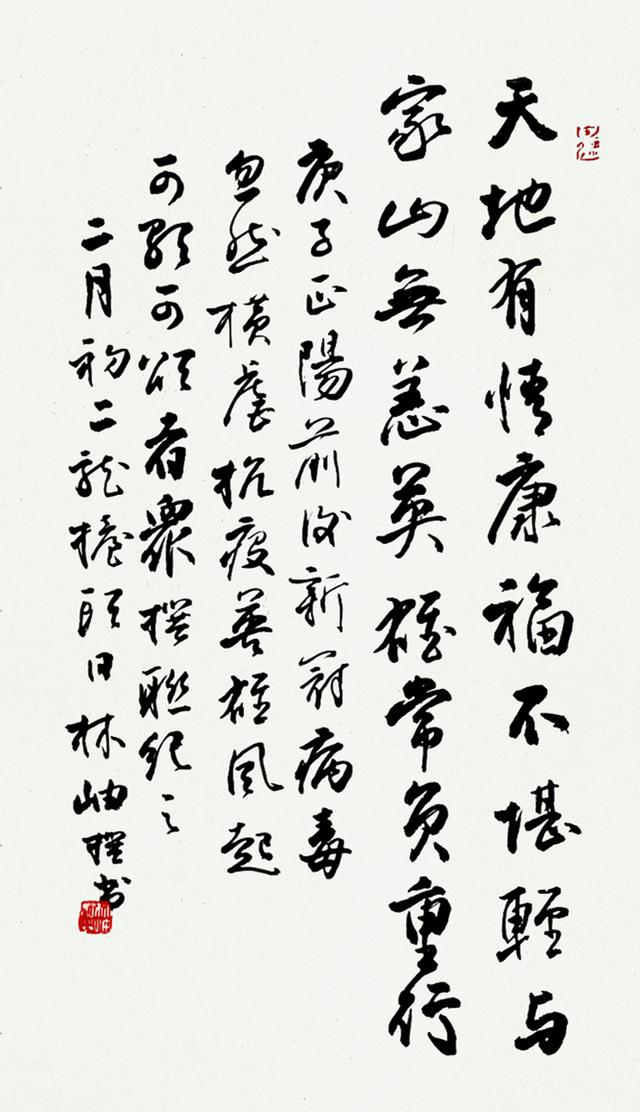 天地有情康福不堪輕与
家山無恙英雄常負重行
庚子正陽前後新冠病毒
忽然橫虐抗疫英雄風起
可歌可頌者眾撰聯紀之
二月初二龍擡頭日林岫撰書